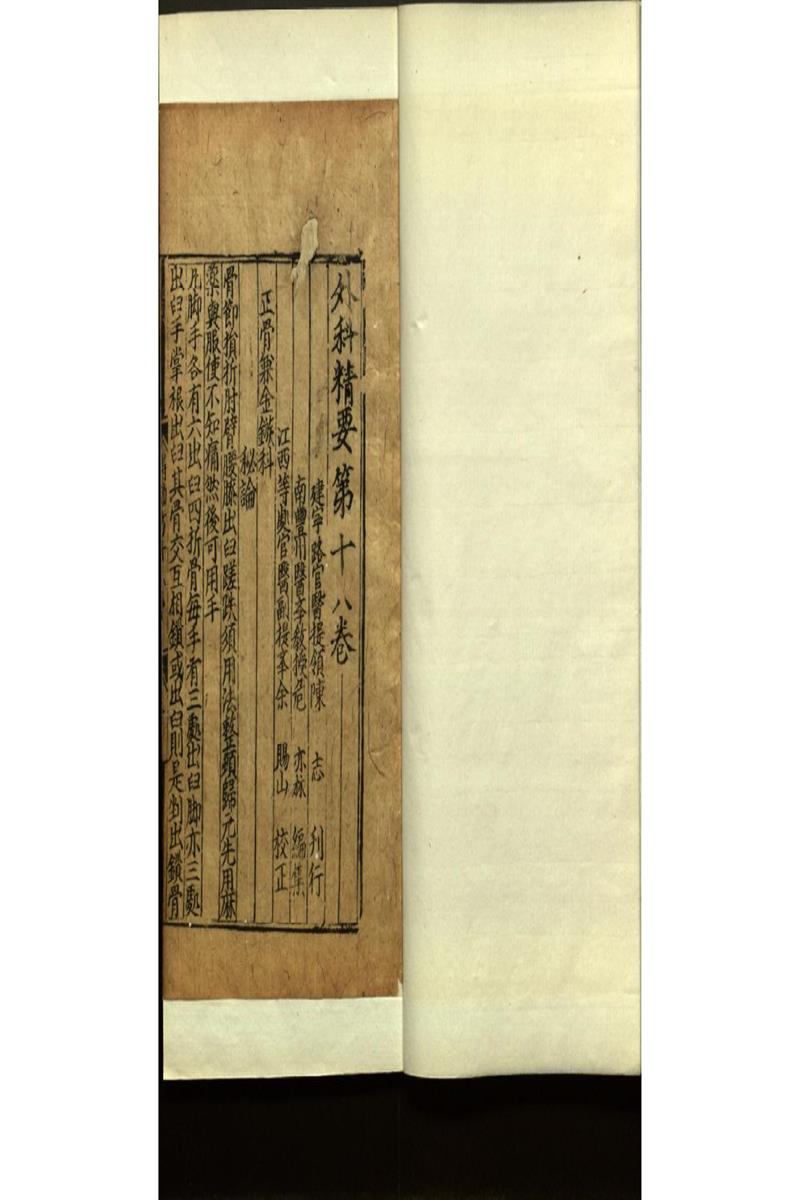 外科精要第十八卷
建寧路官醫提領陳　志　刋行
南豐州醫學教授危　亦林　編集
江西等處官醫副提舉余　賜山　校正
正骨兼金鏃科
秘論
骨節損折肘臂腰膝出臼蹉跌須用法整頓歸元先用麻
藥與服使不知痛然後可用手
凢脚手各有六出臼四折骨每手有三處出臼脚亦三處
出臼手掌根出臼其骨交互相鎖或出臼則是剉出鎖骨